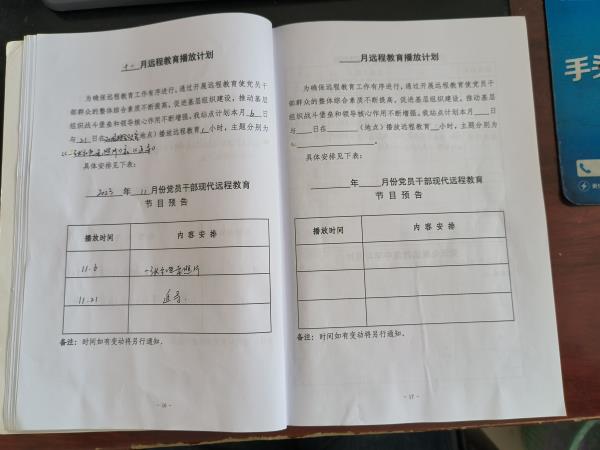 十一月远程教育播放计划
为确保远程教育工作有序进行，通过开展远程教育使党员干
部群众的整体综合素质不断提高，促进基层组织建设，推动基层
组织战斗堡垒和领导核心作用不断增强。我站点计划本月 6 日
与 21 日在（地点）播放远程教育 小时，主题分别为
具体安排见下表：
2023 年 11 月份党员干部现代远程教育
节目预告
播放时间 内容安排
11.6 一张全家照片
11.21 追寻
备注：时间如有变动将另行通知。
- 16 -
____月远程教育播放计划
为确保远程教育工作有序进行，通过开展远程教育使党员干
部群众的整体综合素质不断提高，促进基层组织建设，推动基层
组织战斗堡垒和领导核心作用不断增强。我站点计划本月____日
与____日在________（地点）播放远程教育____小时，主题分别为
具体安排见下表：
____年____月份党员干部现代远程教育
节目预告
播放时间 内容安排
备注：时间如有变动将另行通知。
- 17 -